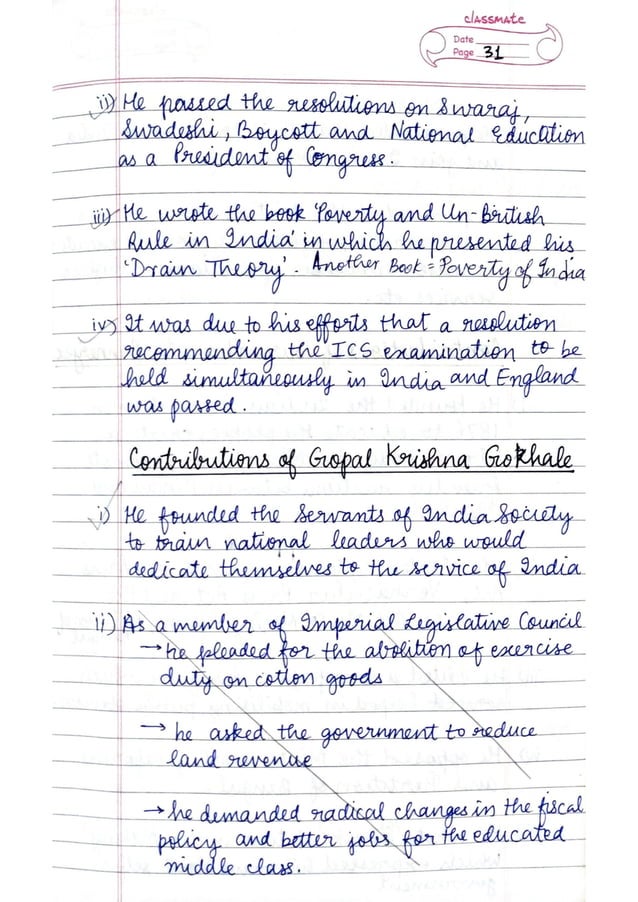 classmate
Date
Page 31
ii) He passed the resolutions on Swaraj,
Swadeshi, Boycott and National Education
as a President of Congress.
iii) He wrote the book 'Poverty and Un-British
Rule in India' in which he presented his
'Drain Theory'. Another Book = Poverty of India
iv) It was due to his efforts that a resolution
recommending the ICS examination to be
held simultaneously in India and England
was passed.
Contributions of Gopal Krishna Gokhale
i) He founded the Servants of India Society
to train national leaders who would
dedicate themselves to the service of India
ii) As a member of Imperial Legislative Council
→ he pleaded for the abolition of exercise
duty on cotton goods
→ he asked the government to reduce
land revenue
→ he demanded radical changes in the fiscal
policy and better jobs for the educated
middle class.